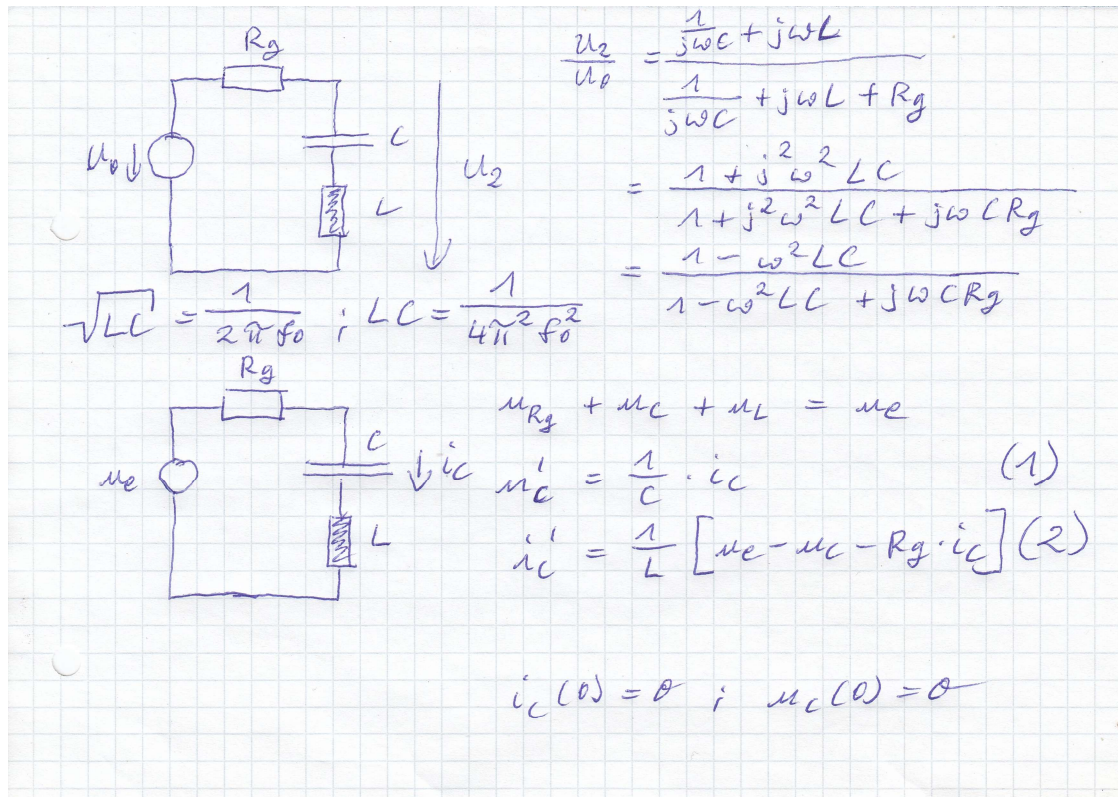 Rg
U₀ ↓
C
L
U₂
U₂/U₀ = (1/(jωC) + jωL)/(1/(jωC) + jωL + Rg)
= (1 + j²ω²LC)/(1 + j²ω²LC + jωCRg)
= (1 - ω²LC)/(1 - ω²LC + jωCRg)
√LC = 1/(2πf₀) ; LC = 1/(4π²f₀²)
Rg
ue
C
↓ ic
L
u_Rg + uC + uL = ue
uC' = 1/C · ic (1)
ic' = 1/L [ue - uC - Rg · ic] (2)
ic(0) = 0 ; uC(0) = 0